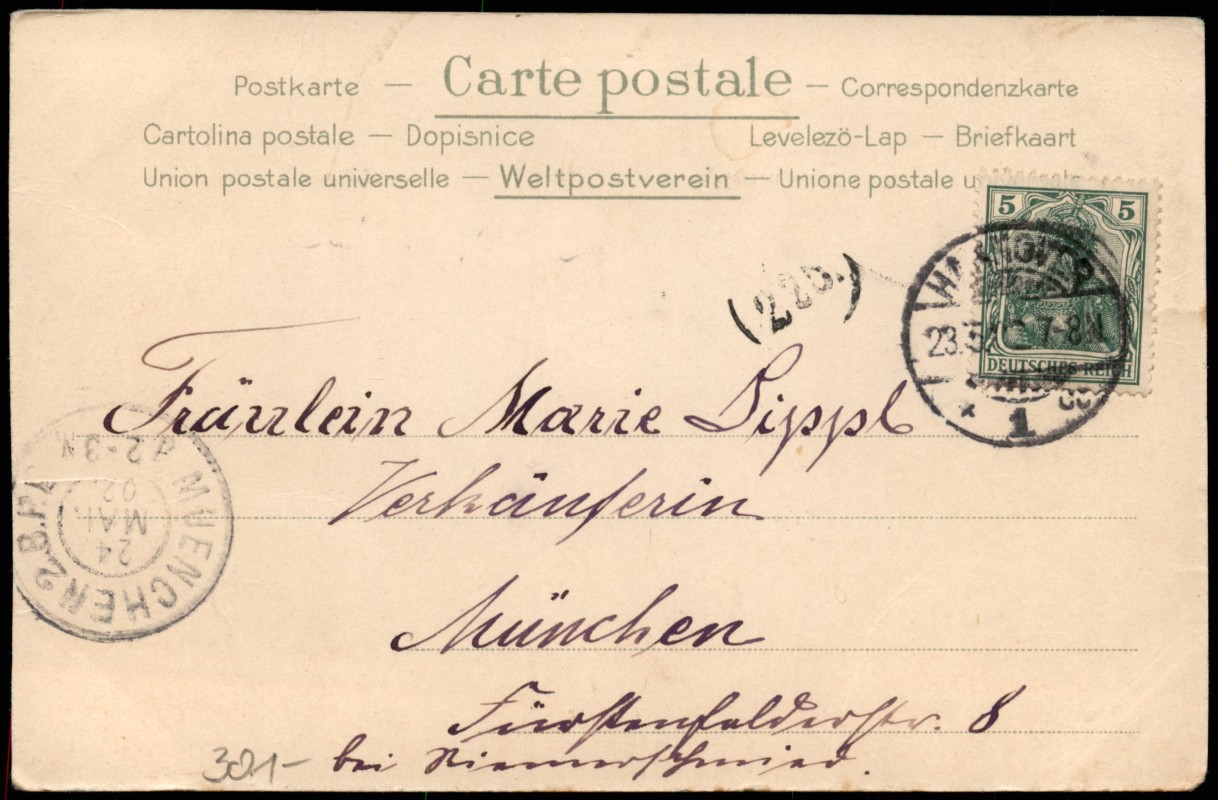 Postkarte — Carte postale — Correspondenzkarte
Cartolina postale — Dopisnice Levelezö-Lap — Briefkaart
Union postale universelle — Weltpostverein — Unione postale
5 5
DEUTSCHES REICH
HANNOVER
23.5.02 7-8N
1
(226.)
Fräulein Marie Lippl
Verkäuferin
München
Fürstenfelderstr. 8
bei Niemerschmied.
301-
MUENCHEN 2.B.P.
24
MAI.
02
2-3N